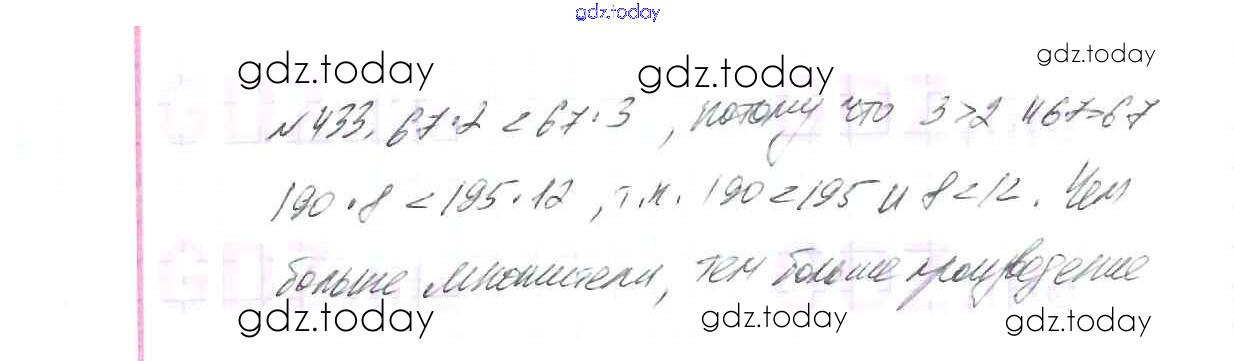 gdz.today
gdz.today gdz.today gdz.today
№433. 67·2 < 67·3, потому что 3>2 и 67=67
190·8 < 195·12, т.к. 190<195 и 8<12. Чем
больше множители, тем больше произведение
gdz.today gdz.today gdz.today